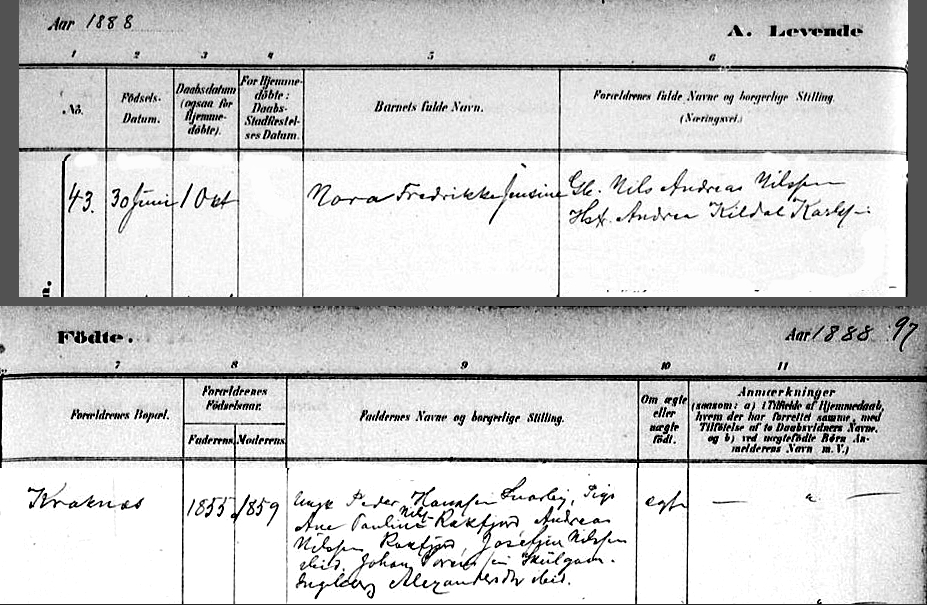 Aar 1888
A. Levende
1 2 3 4 5 6
No. Födsels-Datum. Daabsdatum (ogsaa for Hjemme-døbte). For Hjemme-døbte: Daabs-Stadfæstel-ses Datum. Barnets fulde Navn. Forældrenes fulde Navne og borgerlige Stilling. (Næringsvei.)
43. 30 Juni 1 Okt Nora Fredrikke Jensine Gbr. Nils Andreas Nilssen
Hst. Andrea Kildal Karls
n.
Födte.
Aar 1888 97
7 8 9 10 11
Forældrenes Bopæl. Forældrenes Födselsaar. Faderens. Moderens. Faddernes Navne og borgerlige Stilling. Om ægte eller uægte født. Anmærkninger (saasom: a) i Tilfælde af Hjemmedaab, hvem der har forrettet samme, med Tilføielse af to Daabsvidners Navne, og b) ved uægtefødte Børn Anmelderens Navn m. V.)
Kraknæs 1855 1859 Ungk Peder Hanssen Snarby, Pige ægte — " —
Ane Pauline Nils Rakfjord, Andreas
Nilssen Rakfjord, Josefine Nilssen
ibid. Johan
Ingeborg Alexandersdr ibid.